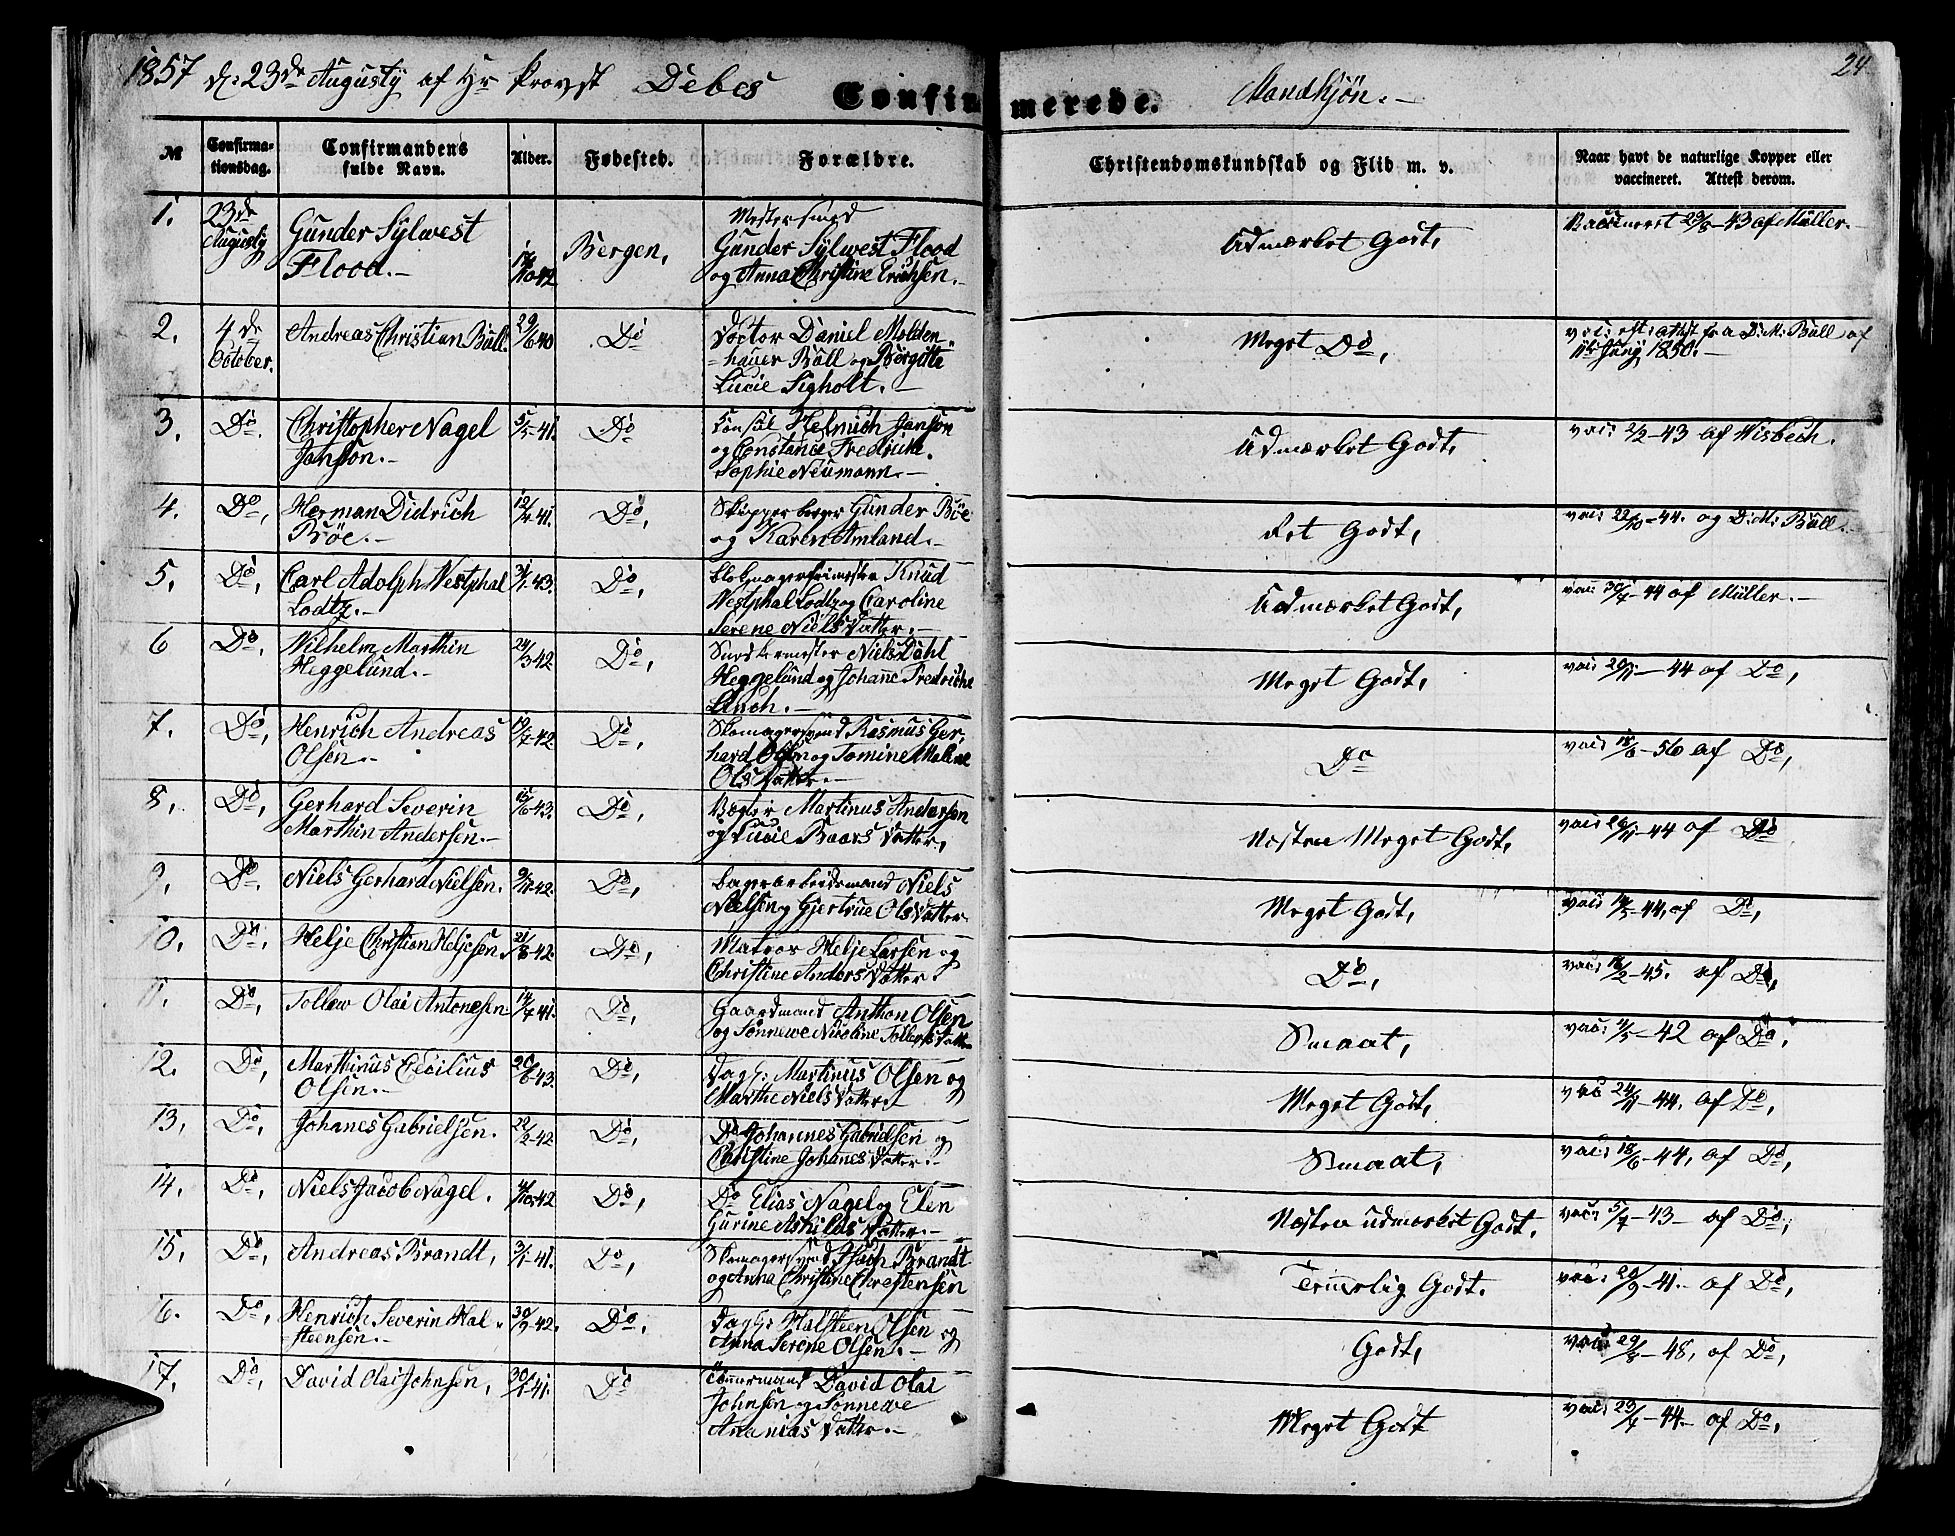 1857 d: 23de Augusty af Hr Provst Debes
Confirmerede.
Mandkjön.-
24
№
Confirmationsdag.
Confirmandens fulde Navn.
Alder.
Fødested.
Forældre.
Christendomskundskab og Flid m. v.
Naar havt de naturlige Kopper eller
vaccineret. Attest derom.
1. 23de Augusty Gunder Sylwest Flood.- Bergen,
Mestersmed
Gunder Sylwest Flood
og Anna Christine Erichsen.-
Udmærket Godt,
Vaccineret 29/8-43 af Müller.-
2. 4de October. Andreas Christian Büll. 29/6-40 Do
Doctor Daniel Molden-
hauer Büll og Börgitte
Lucie Sigholt.-
Meget Do,
vac: eft: attest fra D: M: Büll af
11te Juny 1850.-
3. Do. Christopher Nagel Janson.- 5/5-41. Do
Consul Helmich Janson
og Constance Fredricke
Sophie Neumann.-
Udmærket Godt,
vac: 2/2-43 af Wisbech.
4. Do, Herman Didrich Böe.- 12/4-41. Do,
Skipperborger Gunder Böe
og Karen Amland.-
Ret Godt,
vac: 22/10-44. og D: M: Büll.-
5, Do, Carl Adolph Westphal Lodtz.- 31/1-43. Do,
Knud
Westphal Lodtz og Caroline
Serene Niels Datter.-
Udmærket Godt,
vac: 30/4-44 af Müller.-
6 Do, Wilhelm Marthin Heggelund.- 24/3-42 Do,
Niels Dahl
Heggelund og Johane Fredriche
Meget Godt,
vac: 29/11-44 af Do,
7. Do, Henrich Andreas Olsen.- 19/7-42. Do,
Skomagersvend Rasmus Ger-
hard Olsen og Tomine Malene
Ols Datter.-
Do
vac: 18/6-56 af Do,
8, Do, Gerhard Severin Marthin Andersen.- 15/6-43. Do,
Bager Martinus Andersen
og Lucie Baars Datter,
Næsten Meget Godt,
vac: 29/11-44 af Do
9, Do. Niels Gerhard Nielsen. 9/11-42. Do,
Niels
Nielsen og Gjertrue Ols Datter
Meget Godt,
vac: 14/5-44, af Do,
10, Do, Helje Christian Heljesen. 21/8-42. Do,
Matros Helje Larsen og
Christine Anders Datter.
Do,
vac: 16/2-45. af Do,
11. Do, Tollew Olai Antonesen. 14/7-41. Do,
Gaardmand Anthon Olsen
og Sönnewe Nicoline Tollefs Datter
Smaat,
vac: 11/5-42 af Do.
12. Do, Marthinus Cecilius Olsen.- 26/6-43. Do,
Dagl: Martinus Olsen og
Marthe Niels Datter.-
Meget Godt,
vac 24/11-44, af Do,
13, Do, Johanes Gabrielsen. 22/2-42 Do,
Do Johannes Gabrielsen og
Christine Johanes Datter.-
Smaat,
vac: 18/6-44, af Do,
14, Do, Niels Jacob Nagel. 4/10-42 Do,
Do Elias Nagel og Elen
Gurine Askilds Datter.-
Næsten udmærket Godt.
vac: 5/7-43- af Do,
15, Do, Andreas Brandt, 3/1-41. Do,
Skomagersvend Brandt
og Anna Christine Christensen
Temmelig Godt.
vac: 20/9-41.- af Do,
16. Do, Henrich Severin Hal-
steensen.- 30/9-42. Do,
Dagl: Halsteen Olsen og
Anna Serene Olsen.-
Godt,
vac: 29/8-48, af Do,
17, Do, David Olai Johnsen, 30/1-41. Do
Tömmermand David Olai
Johnsen og Sonnewe
Ananias Datter.-
Meget Godt
vac: 29/4-44.- af Do,